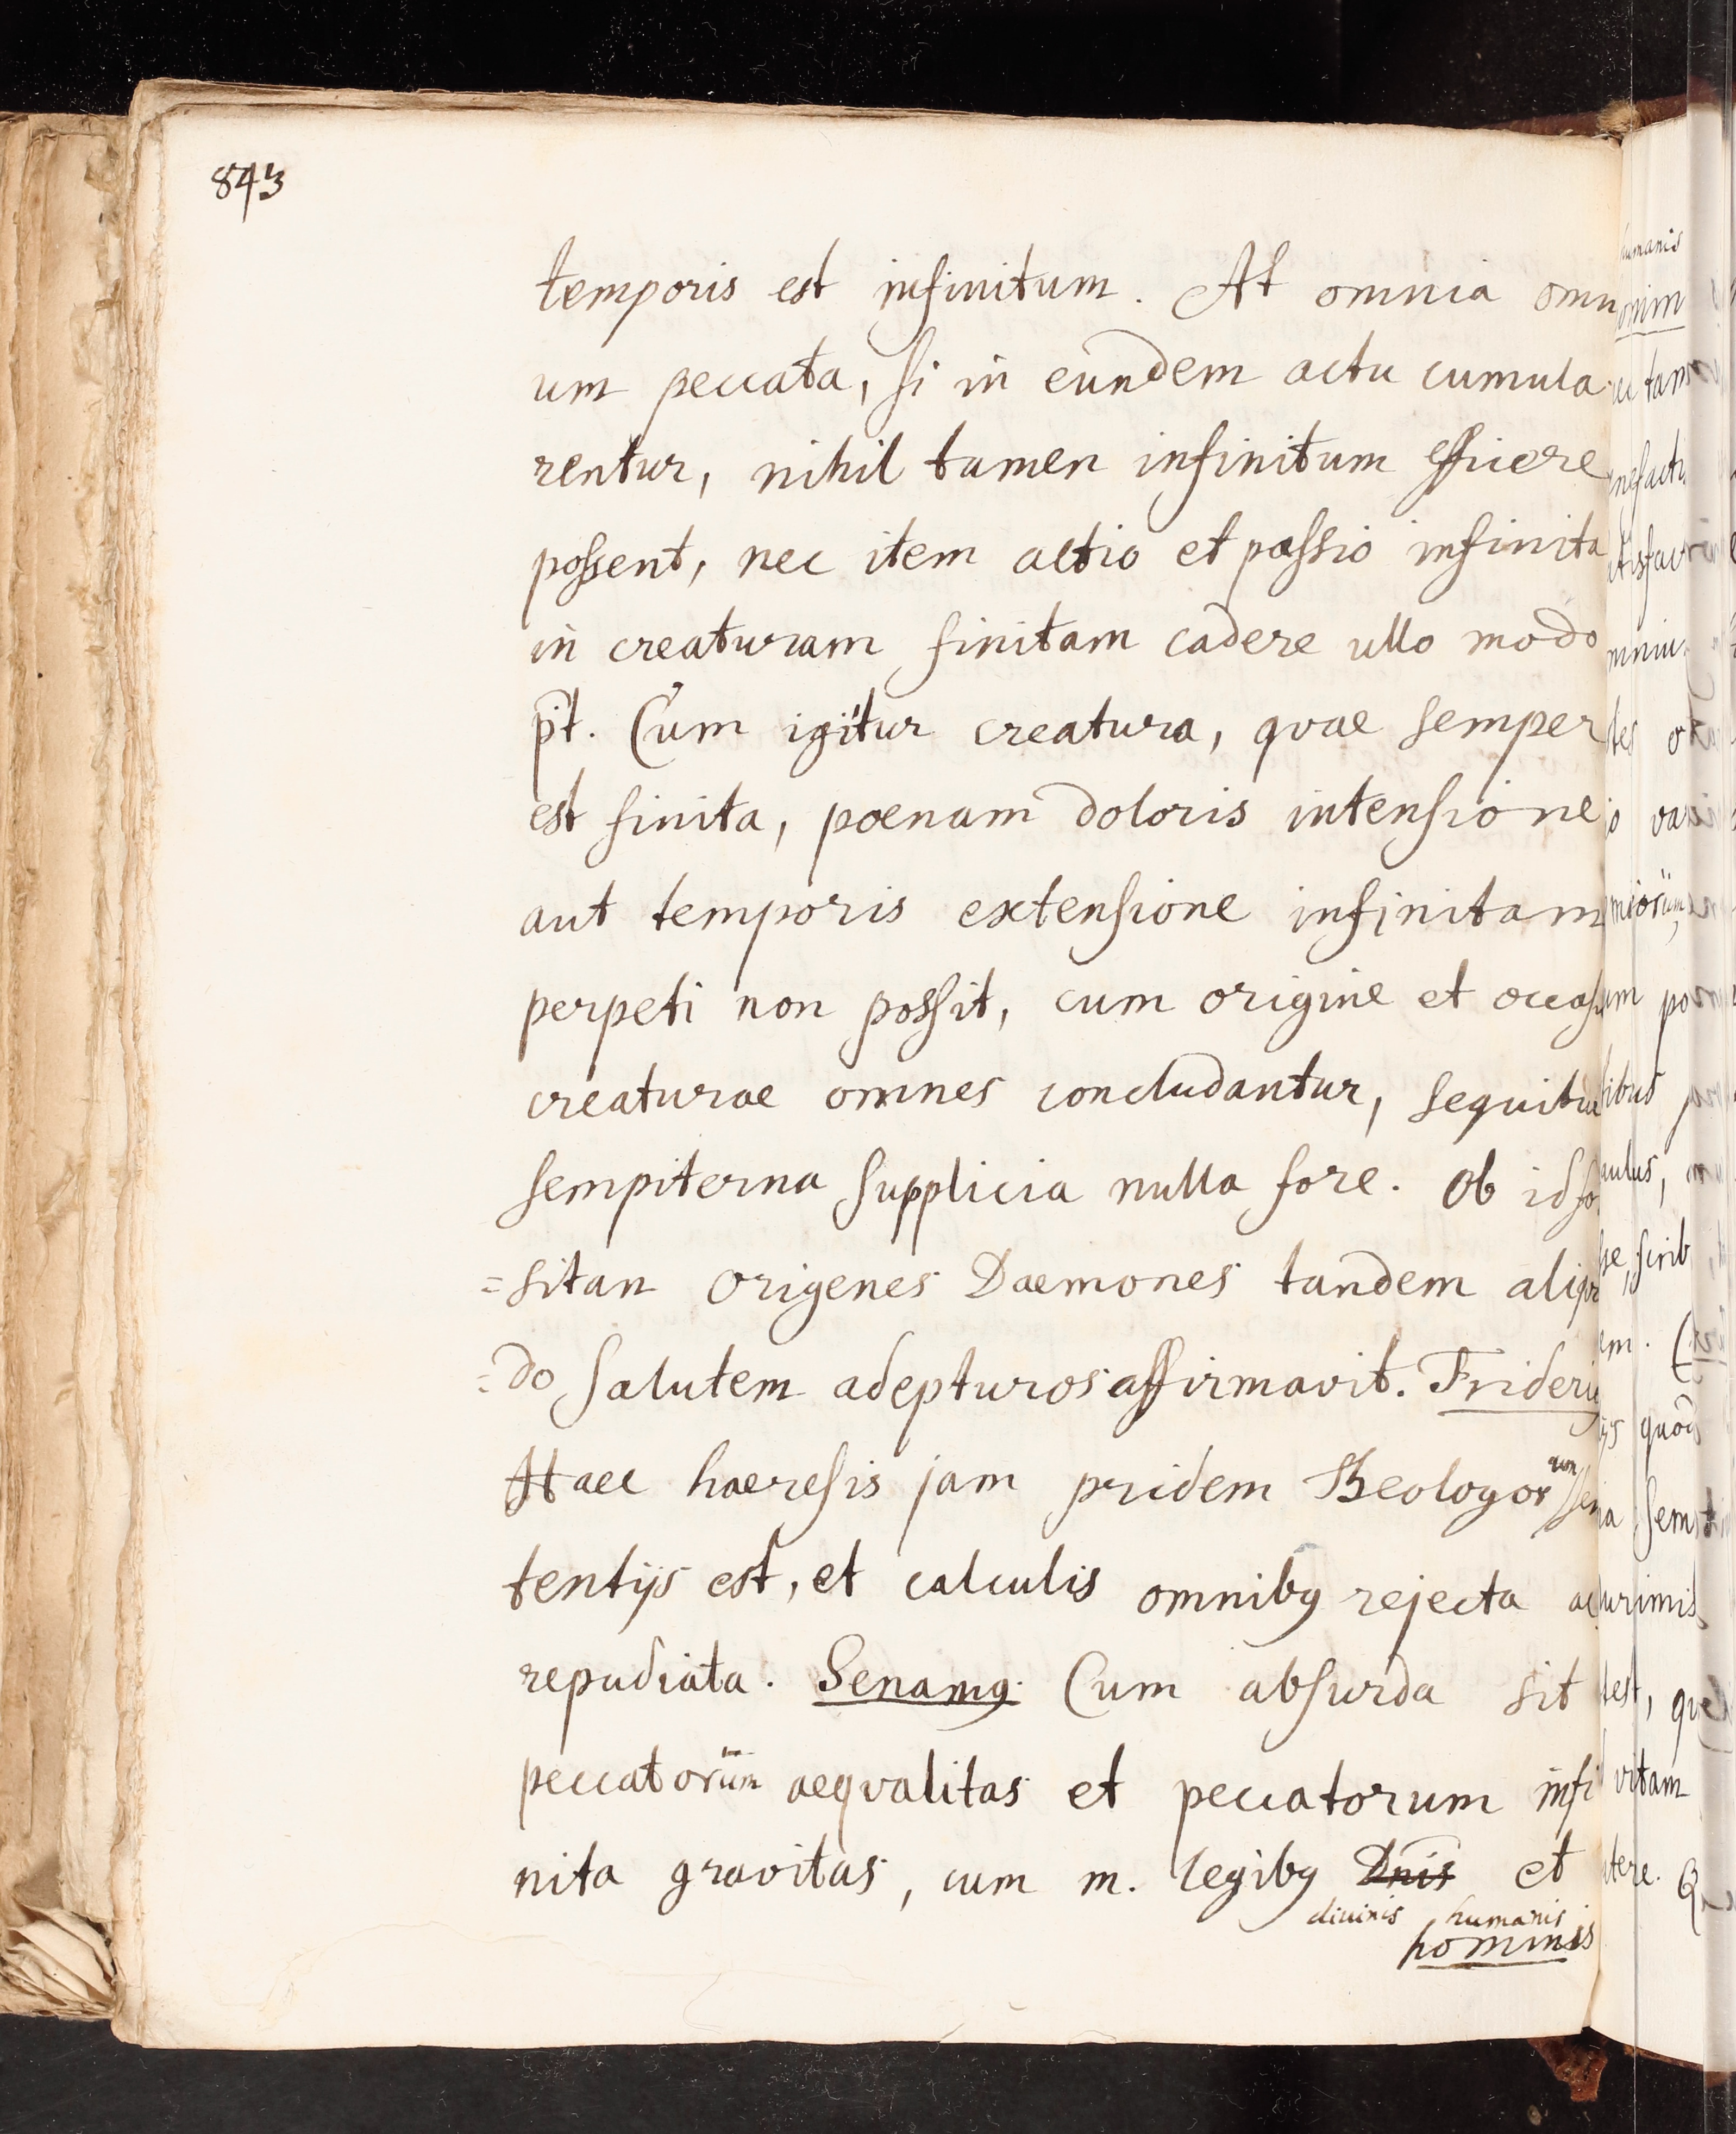 843
temporis est infinitum. At omnia omn
um peccata, si in eundem actu cumula
rentur, nihil tamen infinitum efficere
possent, nec item actio et passio infinita
in creaturam finitam cadere ullo modo
pt. Cum igitur creatura, quae semper
est finita, poenam doloris intensione
aut temporis extensione infinitam
perpeti non possit, cum origine et occasu
creaturae omnes concludantur, sequitur
sempiterna supplicia nulla fore. Ob id fo
=sitan Origenes Daemones tandem aliqu
=do salutem adepturos affirmavit. Frideri
Haec haeresis jam pridem Theologorum sen
tentijs est, et calculis omnibq rejecta ac
repudiata. Senamq. Cum absurda sit
peccatorum aequalitas et peccatorum infi
nita gravitas, cum m. legibq Dnis et
divinis humanis
hominis